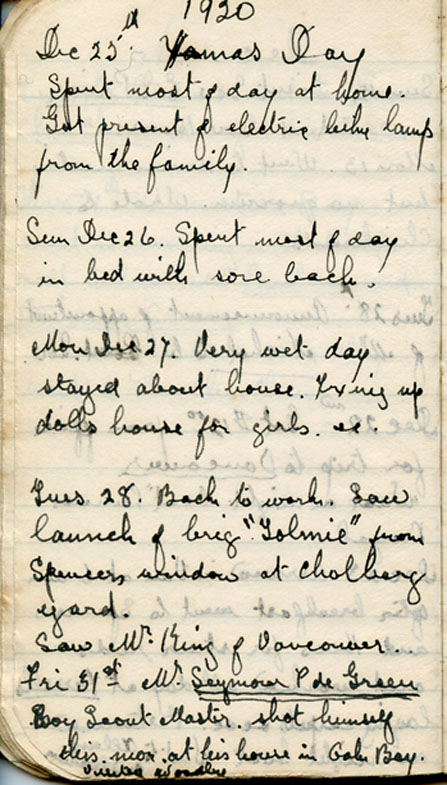 1920
Dec 25th. Xmas Day
Spent most of day at home.
Got present of electric bike lamp
from the family.
Sun Dec 26. Spent most of day
in bed with sore back.
Mon Dec 27. Very wet day
stayed about house. Fixing up
dolls house for girls. etc.
Tues 28. Back to work. Saw
launch of brig "Tolmie" from
Spencers window at Cholberg
yard.
Saw Mr. King of Vancouver...
Fri 31st Mr. Seymour P de Green
Boy Scout Master. shot himself
this. mor. at his house in Oak Bay.
visited